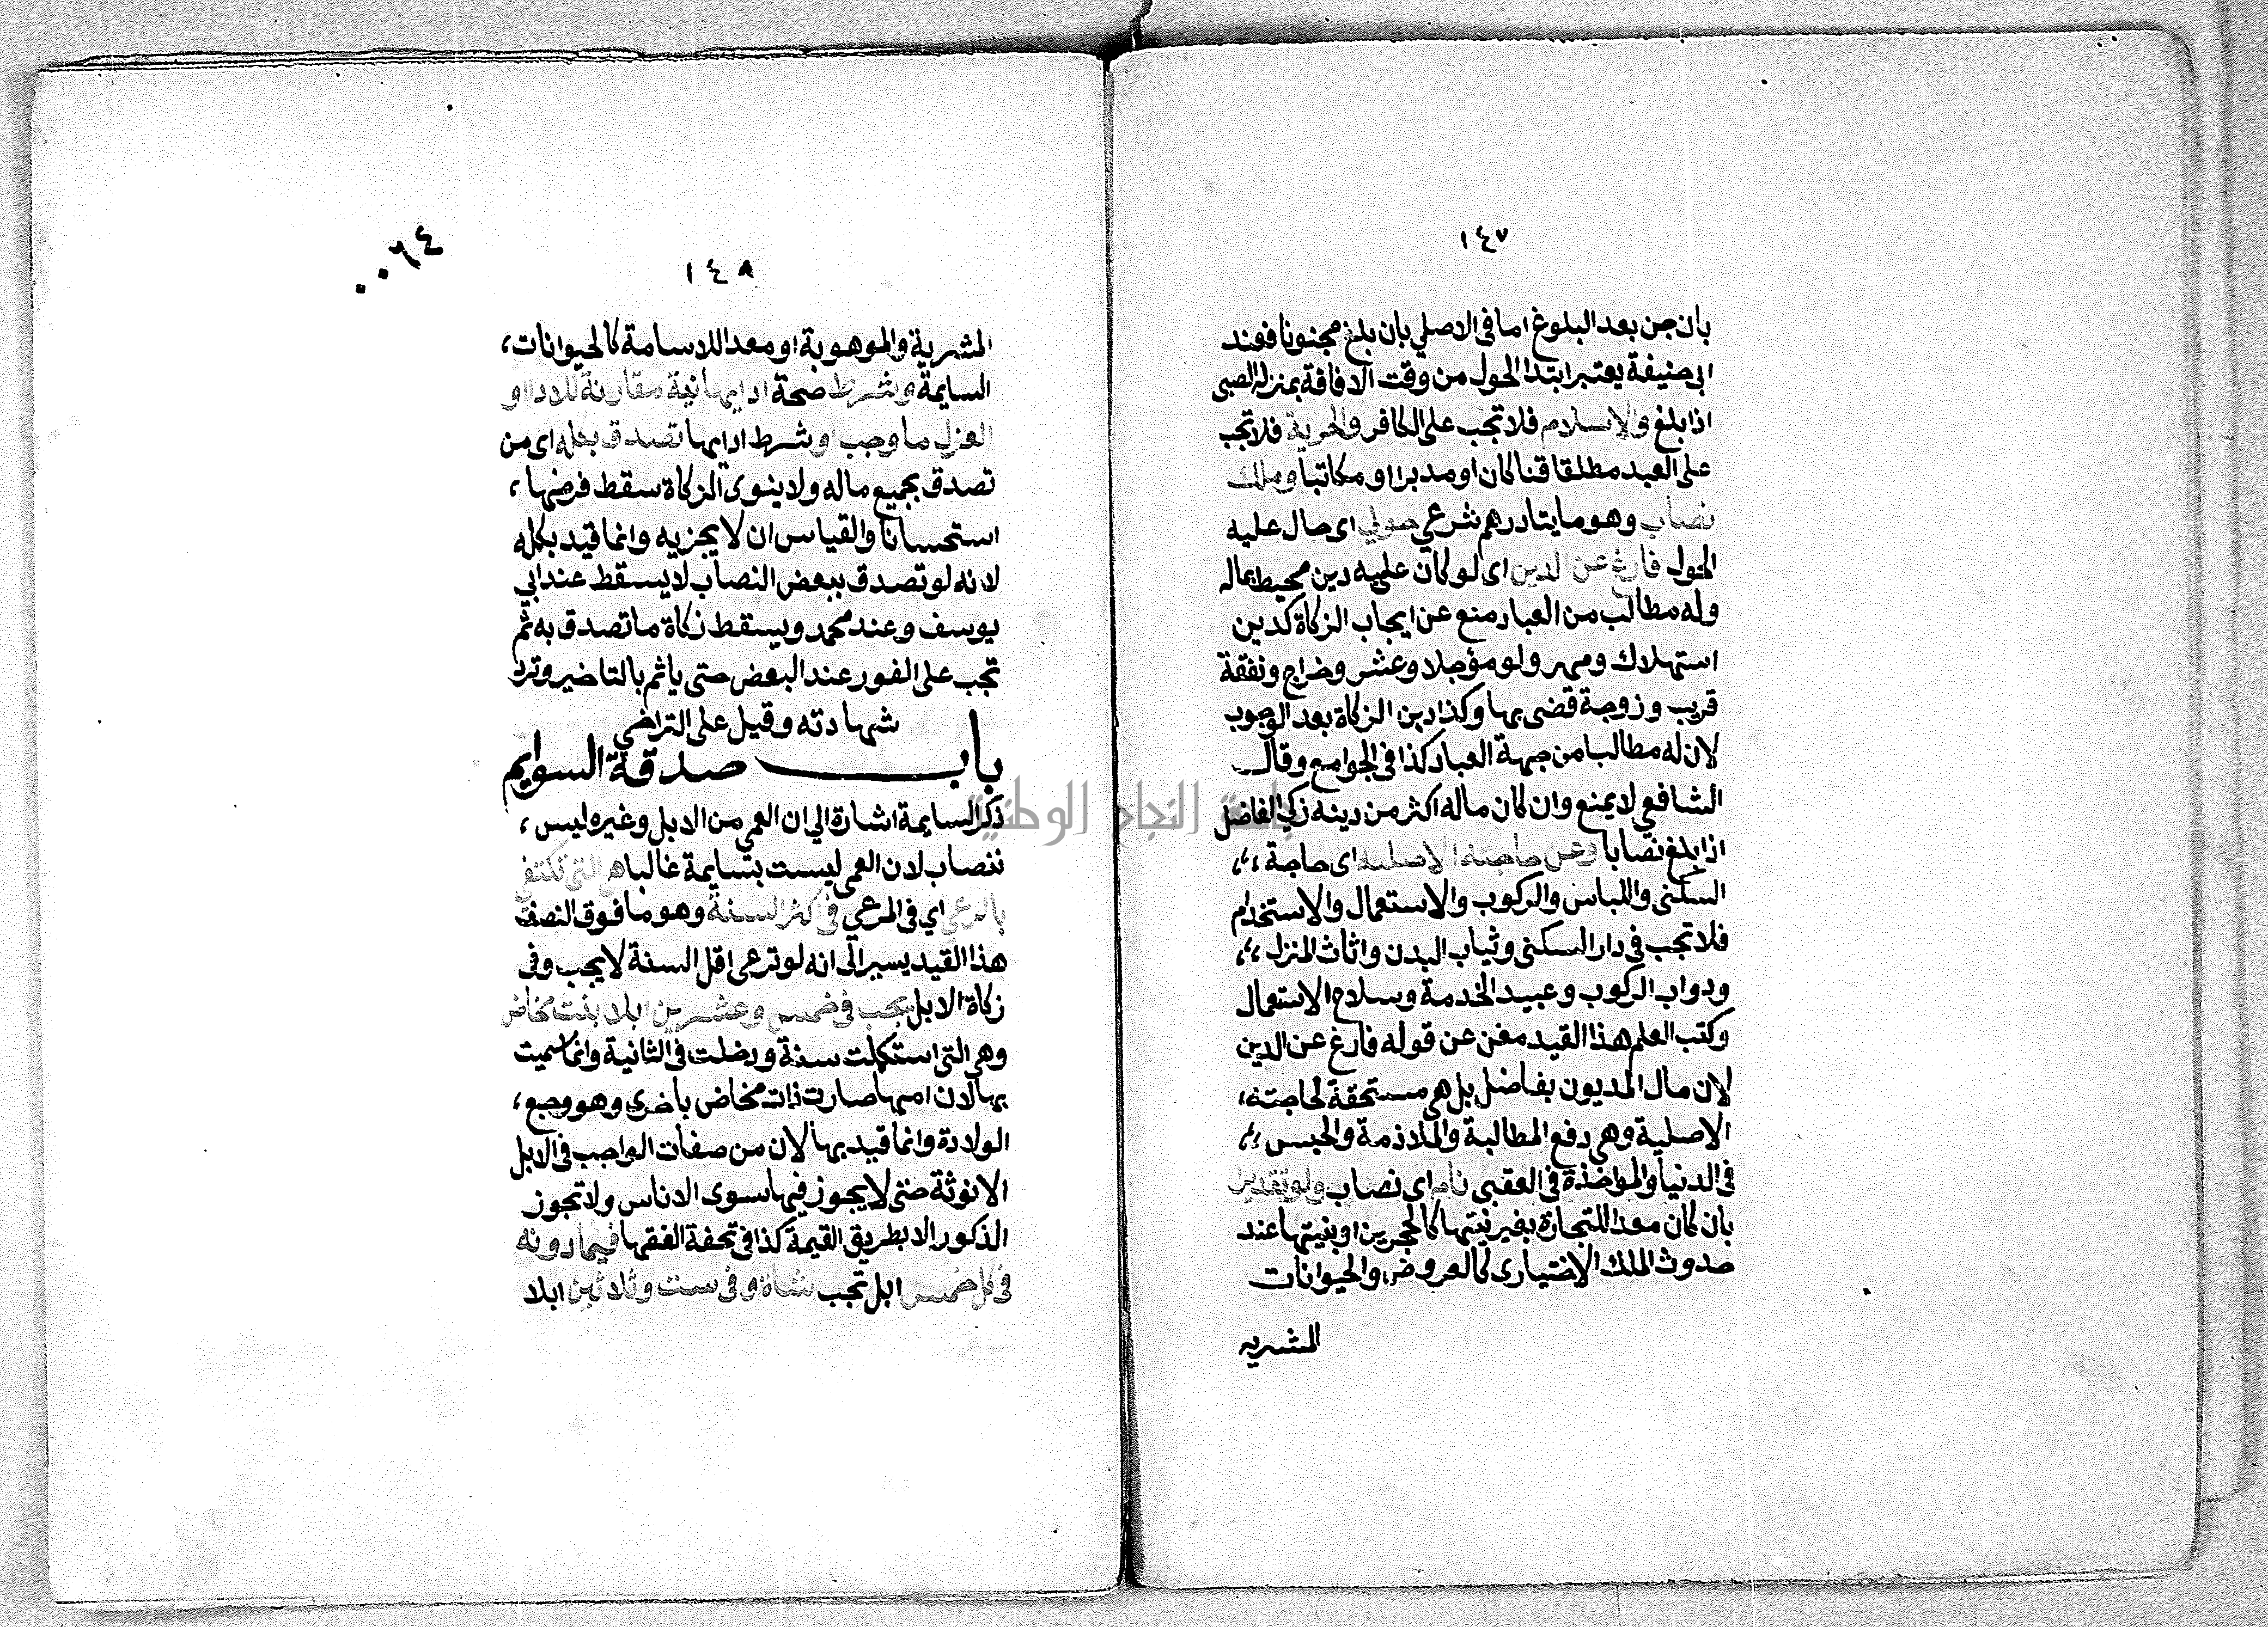 ١٤٧
بان جن بعد البلوغ اما فى الاصلي بان بلغ مجنونا فعند
ابى حنيفة يعتبر ابتدا الحول من وقت الافاقة بمنزلة الصبى
اذا بلغ والاسلام فلا تجب على الكافر والحرية فلا تجب
على العبد مطلقا قنا كان او مدبرا او مكاتبا وملك
نصاب وهو مايتا درهم شرعي حولي اى حال عليه
الحول فارغ عن الدين اى لو كان عليه دين محيط بماله
وله مطالب من العباد منع عن ايجاب الزكاة كدين
استهلاك ومهر ولو مؤجلا وعشر وخراج ونفقة
قريب وزوجة قضى بها وكذا دين الزكاة بعد الوجوب
لان له مطالبا من جهة العباد كذا فى الجوامع وقال
الشافعي لا يمنع وان كان ماله اكثر من دينه زكي الفاضل
اذا بلغ نصابا وعن حاجته الاصليه اى حاجة
السكنى واللباس والركوب والاستعمال والاستخدام
فلا تجب فى دار السكنى وثياب البدن واثاث المنزل
ودواب الركوب وعبيد الخدمة وسلاح الاستعمال
وكتب العلم هذا القيد مغن عن قوله فارغ عن الدين
لان مال المديون بفاضل بل هى مستحقة لحاجته
الاصلية وهى دفع المطالبة والملازمة والحبس
فى الدنيا والمواخذة فى العقبى نام اى نصاب ولو تقديرا
بان كان معدا للتجارة بغير نيتها كالحجرين او بنيتها عند
حدوث الملك الاختيارى كالعروض والحيوانات
المشريه
٠٠٦٤
١٤٨
المشرية والموهوبة او معدا للاسامة كالحيوانات،
السايمة وشرط صحة ادايها نية مقارنة للادا او
العزل ما وجب او شرط ادايها تصدق بكله اى من
تصدق بجميع ماله ولا ينوى الزكاة سقط فرضها،
استحسانا والقياس ان لا يجزيه وانما قيد بكله
لانه لو تصدق ببعض النصاب لا يسقط عند ابي
يوسف وعند محمد ويسقط زكاة ما تصدق به ثم
تجب على الفور عند البعض حتى ياثم بالتاخير وترد
شهادته وقيل على التراخي
باب صدقة السوايم
ذكر السايمة اشارة الي ان العمى من الابل وغيره ليس،
بنصاب لان العمى ليست بسايمة غالبا هى التى تكتفى
بالرعي اي فى المرعي فى اكثر السنة وهو ما فوق النصف
هذا القيد يسير الى انه لو ترعى اقل السنة لا يجب وفى
زكاة الابل يجب فى خمس وعشرين ابلا بنت مخاض
وهى التى استكملت سنة ودخلت فى الثانية وانما سميت
بها لان امها صارت ذات مخاض باخرى وهو وجع،
الولادة وانما قيد بها لان من صفات الواجب فى الابل
الانوثة حتى لا يجوز فيها سوى الاناس ولا تجوز
الذكور الا بطريق القيمة كذا فى تحفة الفقها فيما دونه
فى كل خمس ابل تجب شاة وفى ست وثلاثين ابلا
جامعة النجاح الوطنية